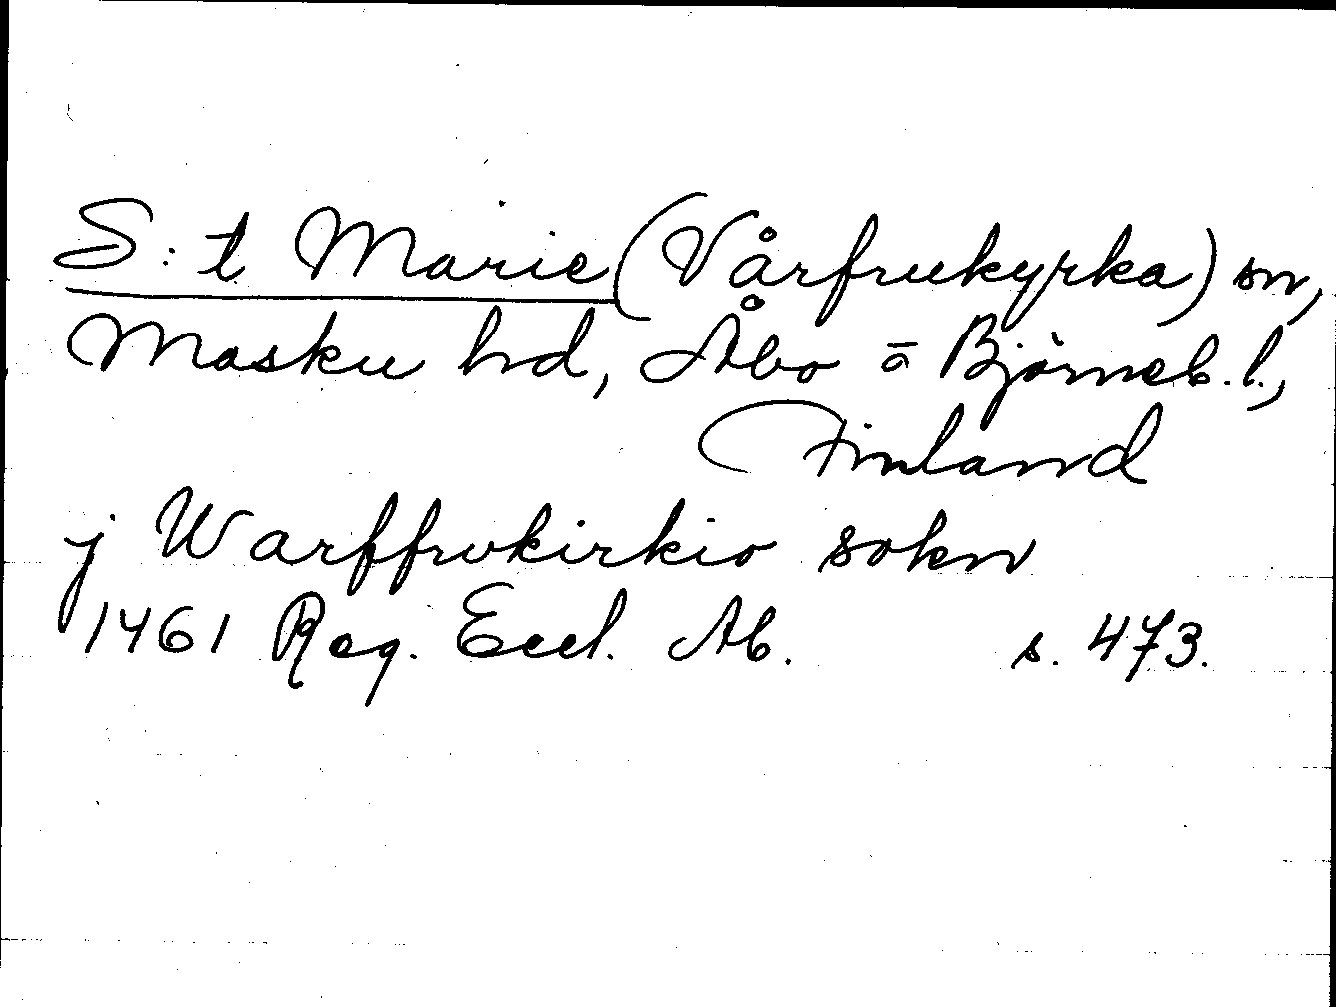 S:t Marie (Vårfrukyrka) sn,
Masku hd, Åbo o Björneb. l.,
Finland
j Warffrvkirkio sokn
1461 Reg. Eccl. Ab. s. 473.